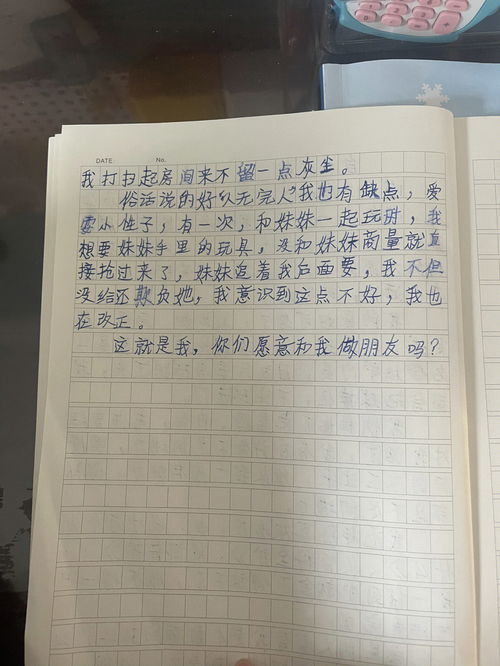 DATE: No.
我打扫起房间来不留一点灰尘。
俗话说的好“人无完人”我也有缺点，爱
耍小性子，有一次，和妹妹一起玩时，我
想要妹妹手里的玩具，没和妹妹商量就直
接抢过来了，妹妹追着我后面要，我不但
没给还欺负她，我意识到这点不好，我也
在改正。
这就是我，你们愿意和我做朋友吗？